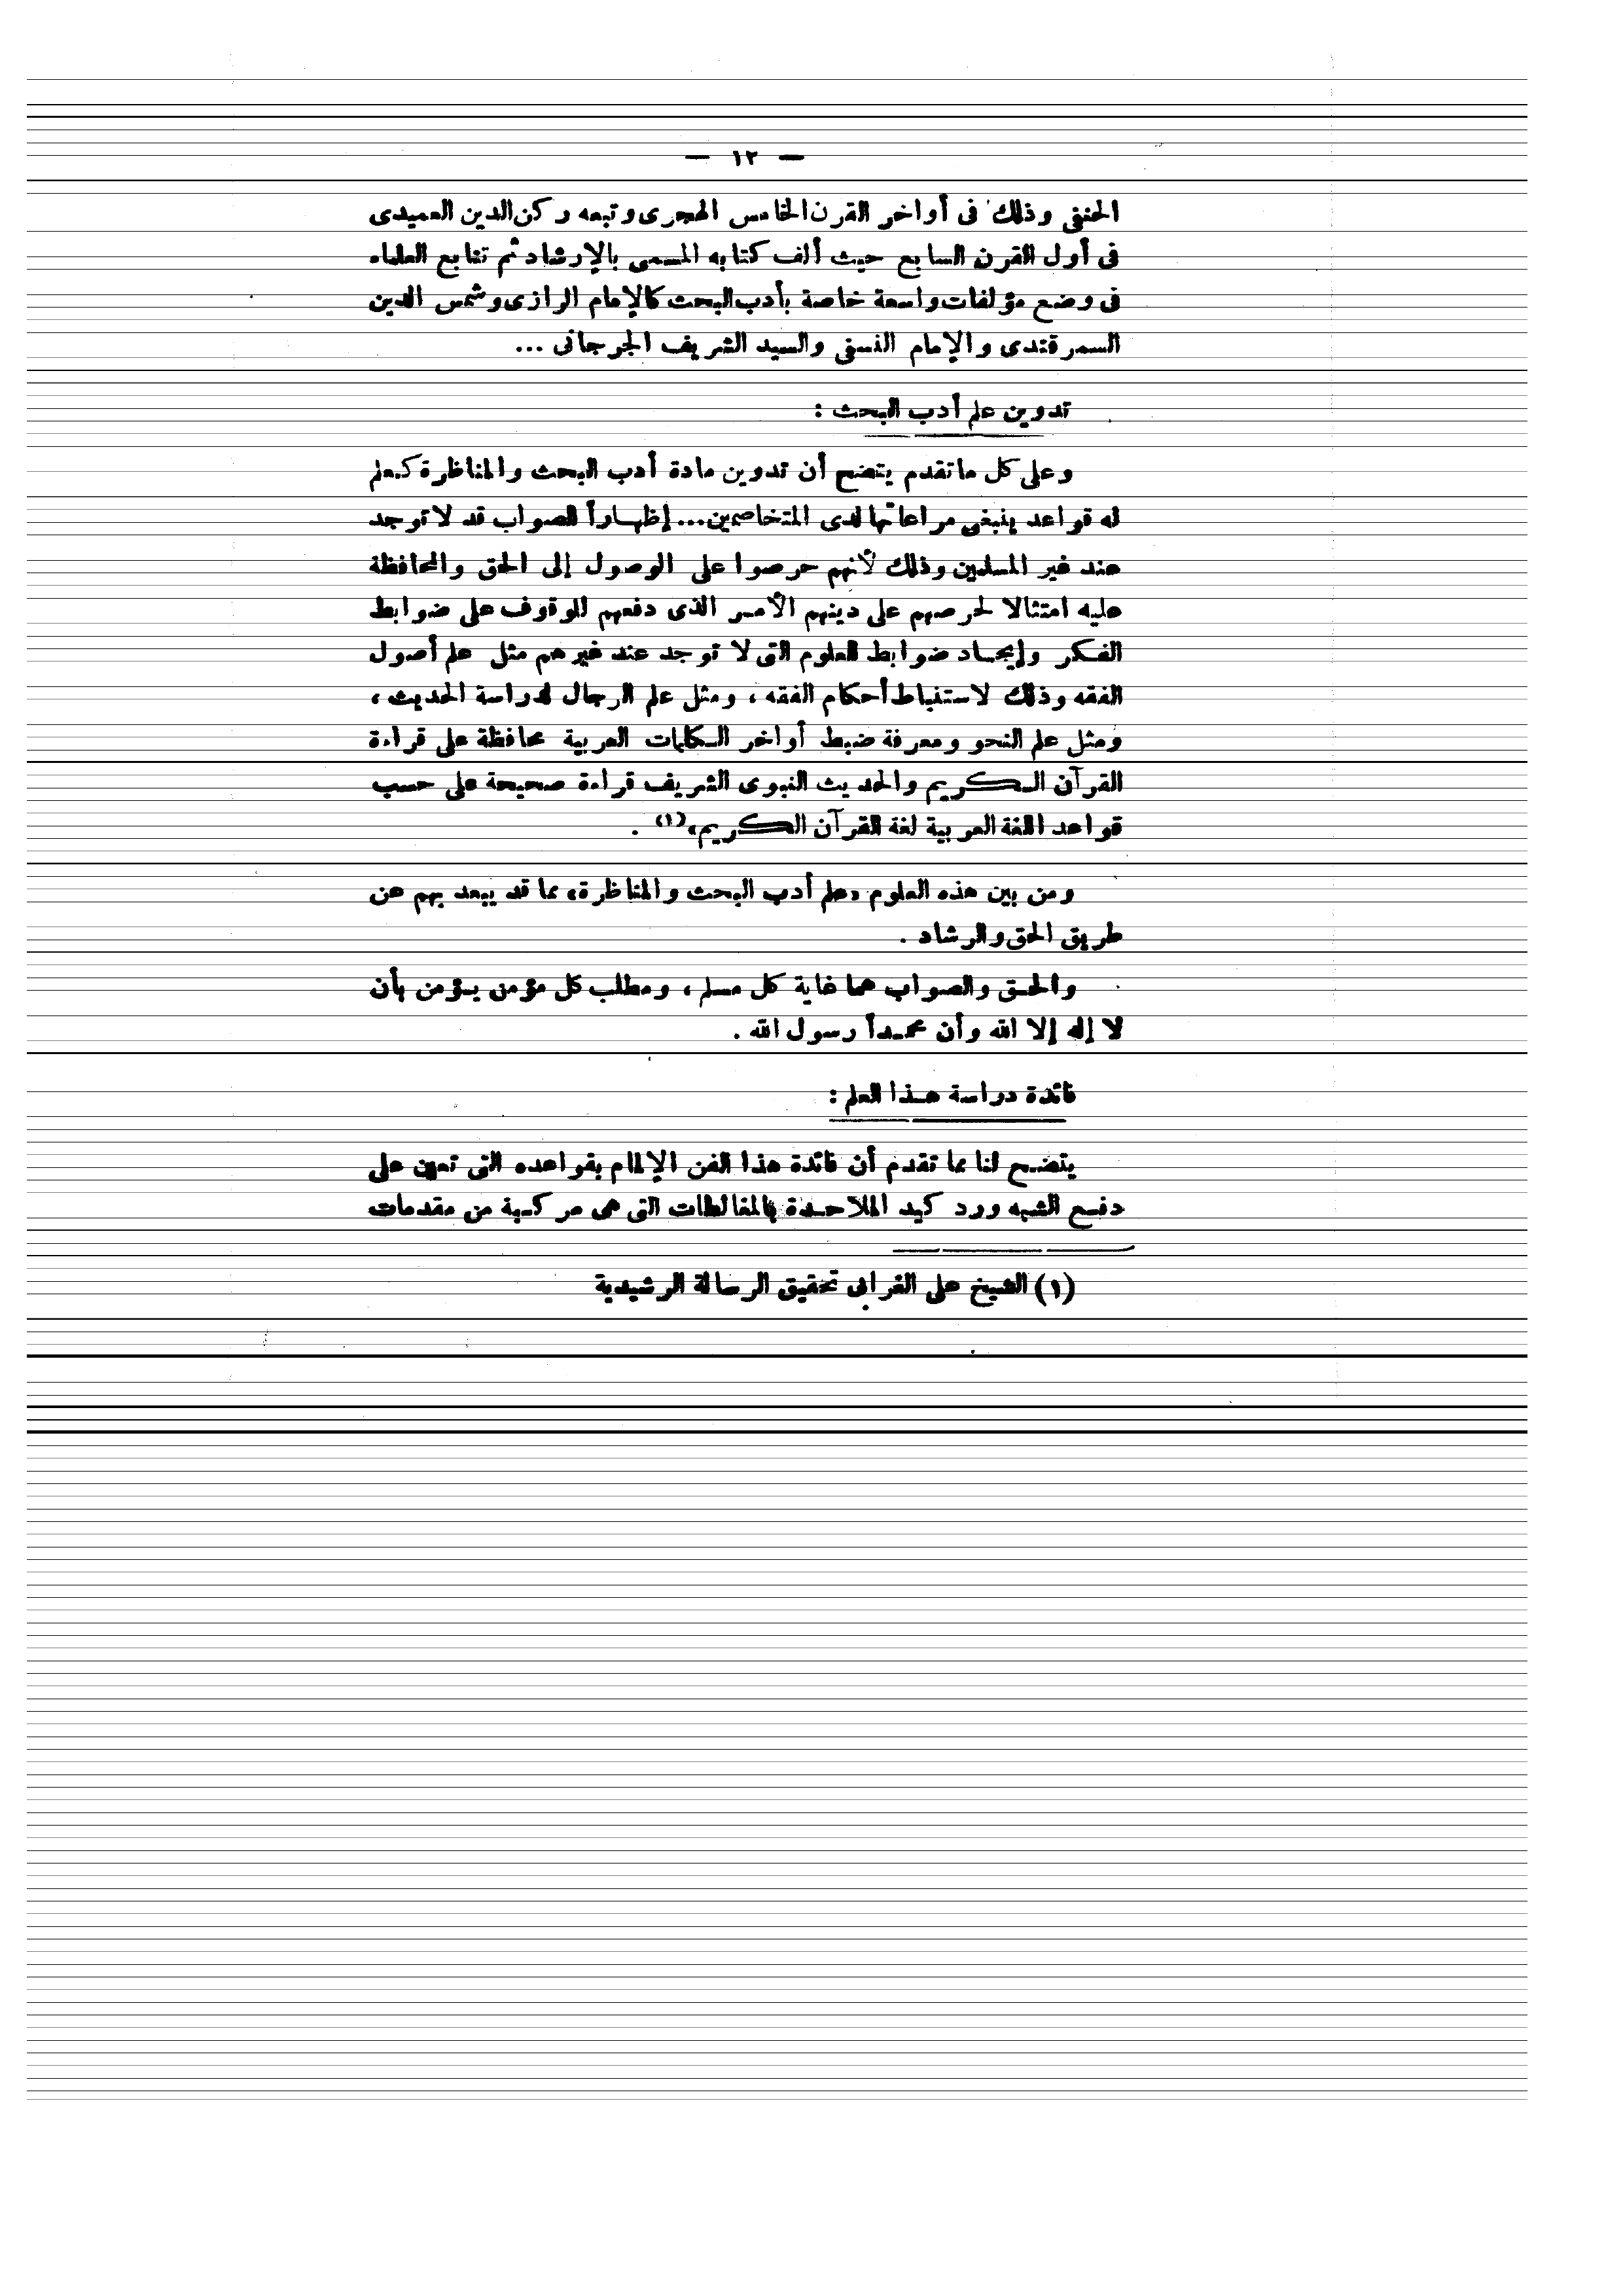 — ١٢ —
الحنفى وذلك فى أواخر القرن الخامس الهجرى وتبعه ركن الدين العميدى
فى أول القرن السابع حيث ألف كتابه المسمى بالإرشاد ثم تتابع العلماء
فى وضع مؤلفات واسعة خاصة بأدب البحث كالإمام الرازى وشمس الدين
السمرقندى والإمام النسفى والسيد الشريف الجرجانى ...
تدوين علم أدب البحث :
وعلى كل ماتقدم يتضح أن تدوين مادة أدب البحث والمناظرة كعلم
له قواعد ينبغى مراعاتها لدى المتخاصمين... إظهاراً للصواب قد لا توجد
عند غير المسلمين وذلك لأنهم حرصوا على الوصول إلى الحق والمحافظة
عليه امتثالا لحرصهم على دينهم الأمر الذى دفعهم للوقوف على ضوابط
الفكر وإيجاد ضوابط للعلوم التى لا توجد عند غيرهم مثل علم أصول
الفقه وذلك لاستنباط أحكام الفقه ، ومثل علم الرجال لدراسة الحديث ،
ومثل علم النحو ومعرفة ضبط أواخر الكلمات العربية محافظة على قراءة
القرآن الكريم والحديث النبوى الشريف قراءة صحيحة على حسب
قواعد اللغة العربية لغة القرآن الكريم،(١) .
ومن بين هذه العلوم «علم أدب البحث والمناظرة» مما قد يبعد بهم عن
طريق الحق والرشاد .
والحق والصواب هما غاية كل مسلم ، ومطلب كل مؤمن يؤمن بأن
لا إله إلا الله وأن محمداً رسول الله .
فائدة دراسة هذا العلم :
يتضح لنا مما تقدم أن فائدة هذا الفن الإلمام بقواعده التى تعين على
دفع الشبه ورد كيد الملاحدة بالمغالطات التى هى مركبة من مقدمات
(١) الشيخ على الغرابى تحقيق الرسالة الرشيدية